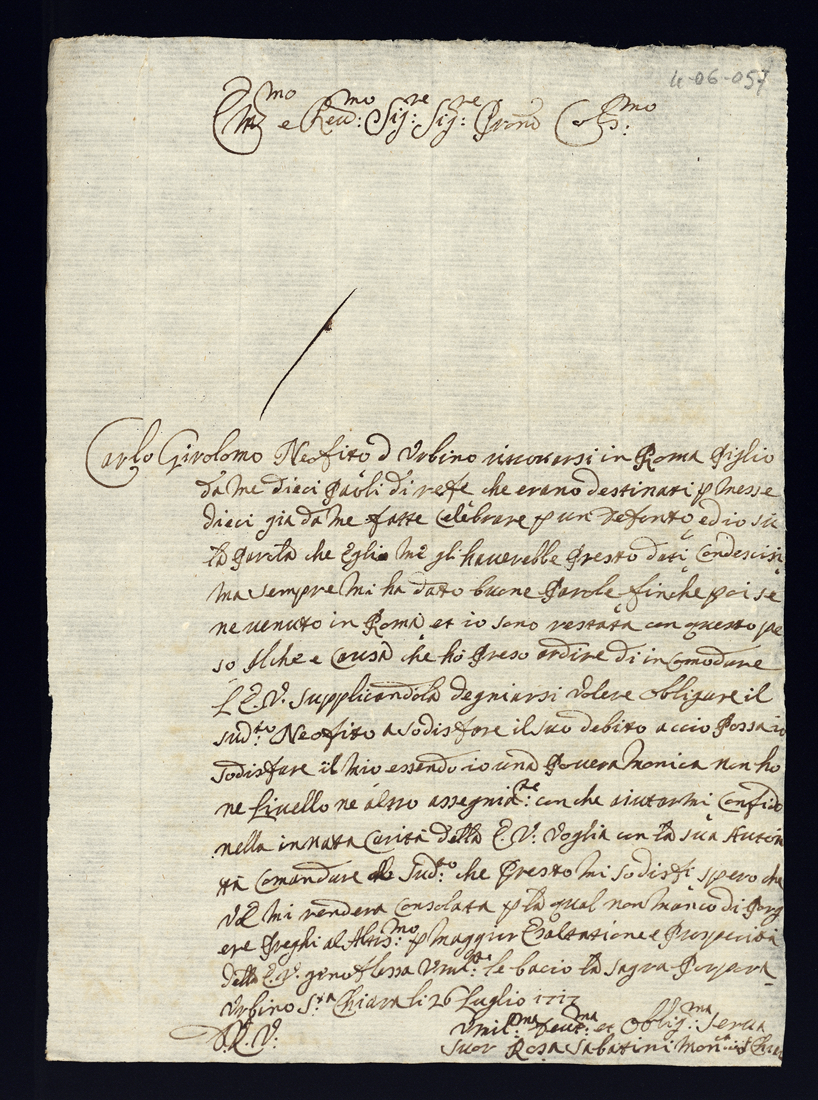 4-06-057
Em.mo e Reu:mo Sig:re Sig:re Pron Col:mo
Carlo Girolomo Neofito d Vrbino ritrouarsi in Roma Piglio
da me dieci Paoli di refe che erano destinati p messe
dieci gia da me fatte Celebrare p un defonto ed io su
la Parola che Egli me gli hauerebbe Presto dati Condescisi
ma sempre mi ha dato buone Parole finche poi se
ne uenuto in Roma et io sono restata con questo pe
so Ilche e Causa che ho Preso ardire di incomodare
L E.V. supplicandola degniarsi Volere Obligare il
sud:to Neofito a sodisfare il suo debito accio Possa io
sodisfare il mio essendo io una Pouera Monica non ho
ne Liuello ne altro assegnia:te con che aiutarmi Confido
nella innata Carità della E.V: Voglia con la sua Autori
tà Comandare al Sud:to che Presto mi sodisfi spero che
Vol mi rendera Consolata p la qual non manco di Porg
ere Preghi al Altis:mo p maggior Esaltatione e Prosperità
della E.V. genoflessa Vmil:te le bacio la sagra Porpora
Vrbino S:ta Chiara li 26 Luglio 1717
D.E.V:
Vmil:ma Deu:ma et Oblig:ma Serua
Suor Rosa Sabatini Mon:ca in S Chiara